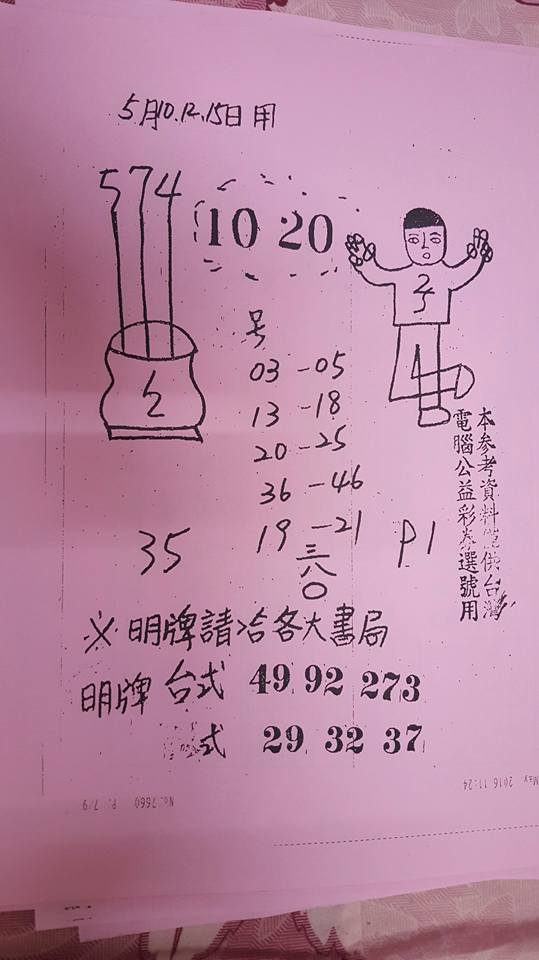 5月10.12.15日 用
574
10 20
2
号
03 -05
13 -18
20 -25
36 -46
19 -21
三八〇
35
P1
本参考資料僅供台灣
電腦公益彩券選號用
※ 明牌請洽各大書局
明牌 台式 49 92 273
式 29 32 37
May 2016 11:24
No.7660 P. 7/9